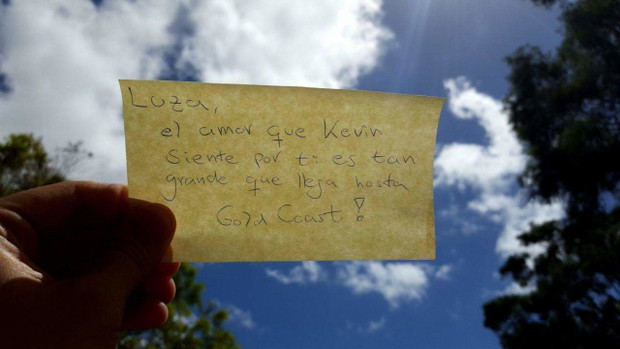 Luza,
el amor que Kevin
siente por ti es tan
grande que llega hasta
Gold Coast!